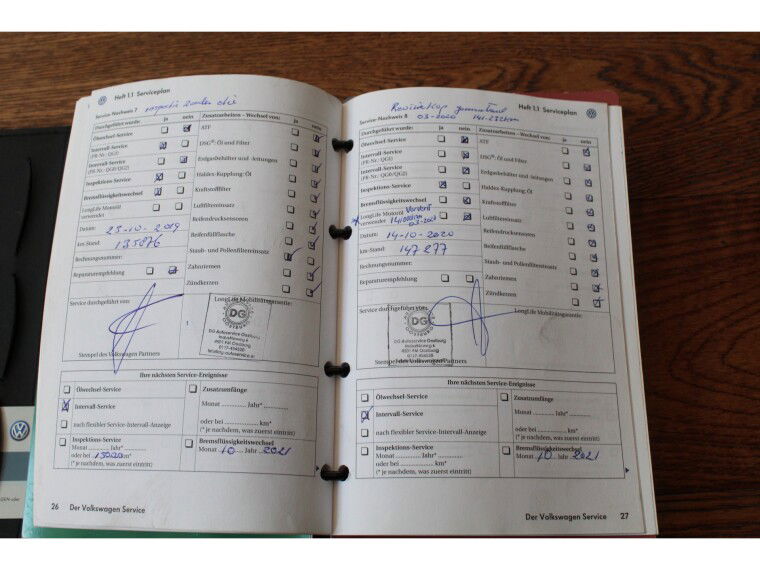 Heft 1.1 Serviceplan
Service-Nachweis 7
Durchgeführt wurde: ja nein
Ölwechsel-Service
Intervall-Service
(PR-Nr.: QG1)
Intervall-Service
(PR-Nr.: QG0/QG2)
Inspektions-Service
Bremsflüssigkeitswechsel
LongLife Motoröl
verwendet
Datum: 23-10-2019
km-Stand: 135876
Rechnungsnummer:
Reparaturempfehlung
Zusatzarbeiten - Wechsel von: ja nein
ATF
DSG®: Öl und Filter
Erdgasbehälter und -leitungen
Haldex-Kupplung: Öl
Kraftstofffilter
Luftfiltereinsatz
Reifendrucksensoren
Reifenfüllflasche
Staub- und Pollenfiltereinsatz
Zahnriemen
Zündkerzen
Service durchgeführt von:
LongLife Mobilitätsgarantie:
DG
DG Autoservice Oostburg
4501 PM Oostburg
Stempel des Volkswagen Partners
Ihre nächsten Service-Ereignisse
Ölwechsel-Service
Intervall-Service
nach flexibler Service-Intervall-Anzeige
Inspektions-Service
Monat ........... Jahr*...........
oder bei ........... km*
(* je nachdem, was zuerst eintritt)
Zusatzumfänge
Monat ........... Jahr* ...........
oder bei ........... km*
(* je nachdem, was zuerst eintritt)
Bremsflüssigkeitswechsel
Monat 10 Jahr 2021
26 Der Volkswagen Service
Heft 1.1 Serviceplan
03-2020 141-232km
Service-Nachweis 8
Durchgeführt wurde: ja nein
Ölwechsel-Service
Intervall-Service
(PR-Nr.: QG1)
Intervall-Service
(PR-Nr.: QG0/QG2)
Inspektions-Service
Bremsflüssigkeitswechsel
LongLife Motoröl
verwendet
03-2020
Datum: 14-10-2020
km-Stand: 147277
Rechnungsnummer:
Reparaturempfehlung
Zusatzarbeiten - Wechsel von: ja nein
ATF
DSG®: Öl und Filter
Erdgasbehälter und -leitungen
Haldex-Kupplung: Öl
Kraftstofffilter
Luftfiltereinsatz
Reifendrucksensoren
Reifenfüllflasche
Staub- und Pollenfiltereinsatz
Zahnriemen
Zündkerzen
Service durchgeführt von:
LongLife Mobilitätsgarantie:
DG
DG Autoservice Oostburg
4501 PM Oostburg
Stempel des Volkswagen Partners
Ihre nächsten Service-Ereignisse
Ölwechsel-Service
Intervall-Service
nach flexibler Service-Intervall-Anzeige
Inspektions-Service
Monat ........... Jahr*...........
oder bei ........... km*
(* je nachdem, was zuerst eintritt)
Zusatzumfänge
Monat ........... Jahr* ...........
oder bei ........... km*
(* je nachdem, was zuerst eintritt)
Bremsflüssigkeitswechsel
Monat 10 Jahr 2021
Der Volkswagen Service 27